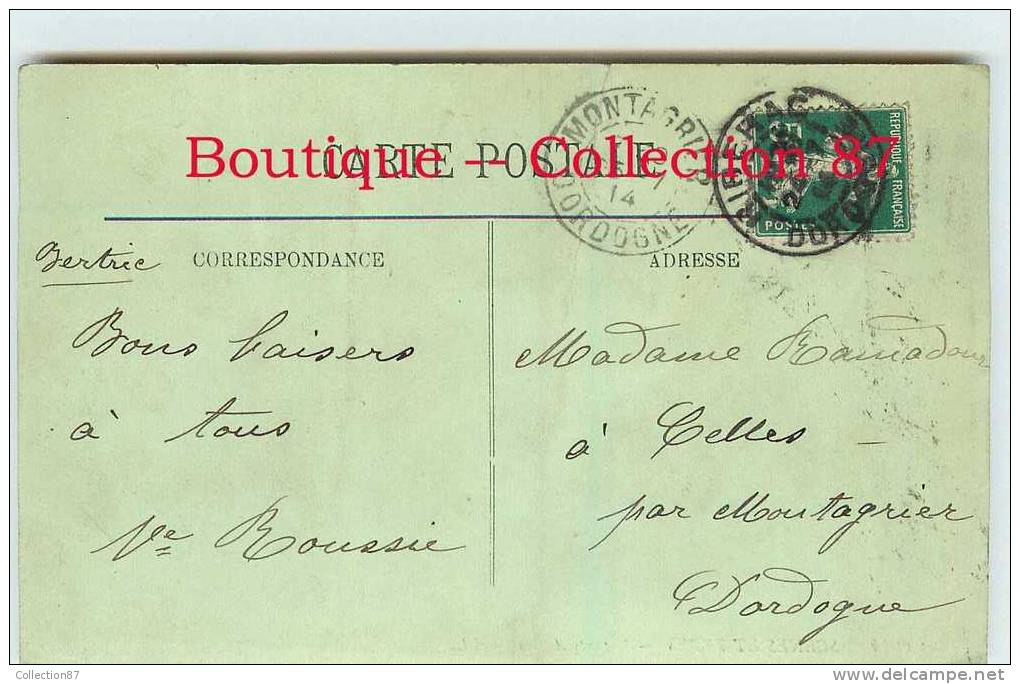 Boutique -- Collection 87
CARTE POSTALE
MONTAGRIER
14
DORDOGNE
RIBERAC
DORDOGNE
REPUBLIQUE FRANÇAISE
POSTES
Bertric
CORRESPONDANCE
ADRESSE
Bons baisers
à tous
Ve Roussie
Madame Ramadour
à Celles
par Montagrier
Dordogne
Collection87
delcampe.net